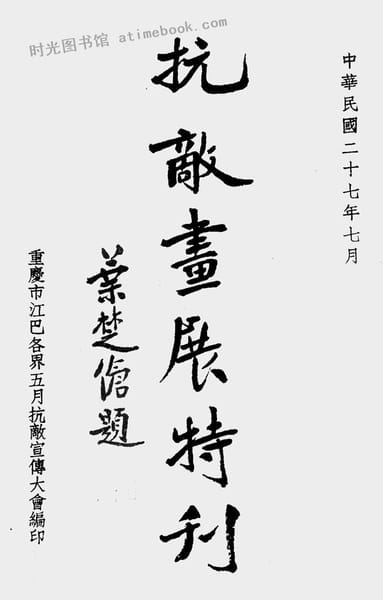 时光图书馆 atimebook.com
中華民國二十七年七月
抗敵畫展特刊
葉楚傖題
重慶市江巴各界五月抗敵宣傳大會編印